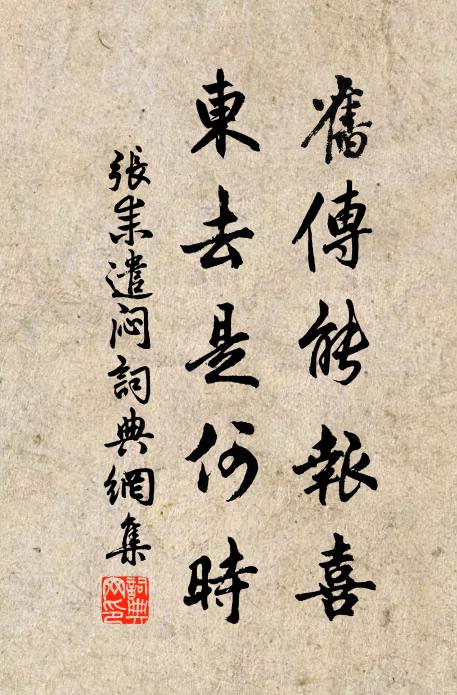 舊傳能報喜
東去是何時
張耒遣悶詞典網集
詞典網印